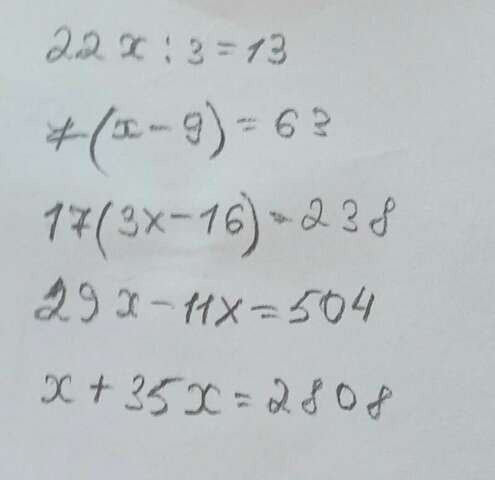 22x:3=13
7(x-9)=63
17(3x-16)=238
29x-11x=504
x+35x=2808